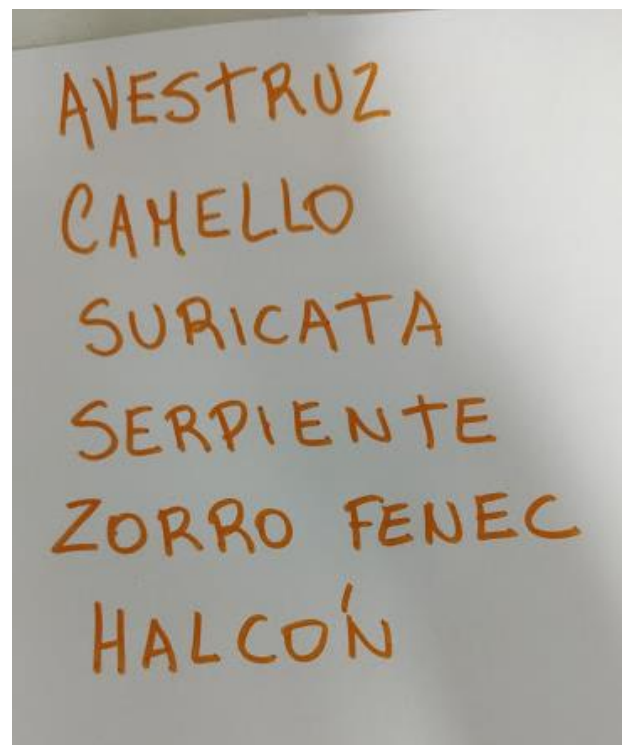 AVESTRUZ
CAMELLO
SURICATA
SERPIENTE
ZORRO FENEC
HALCÓN